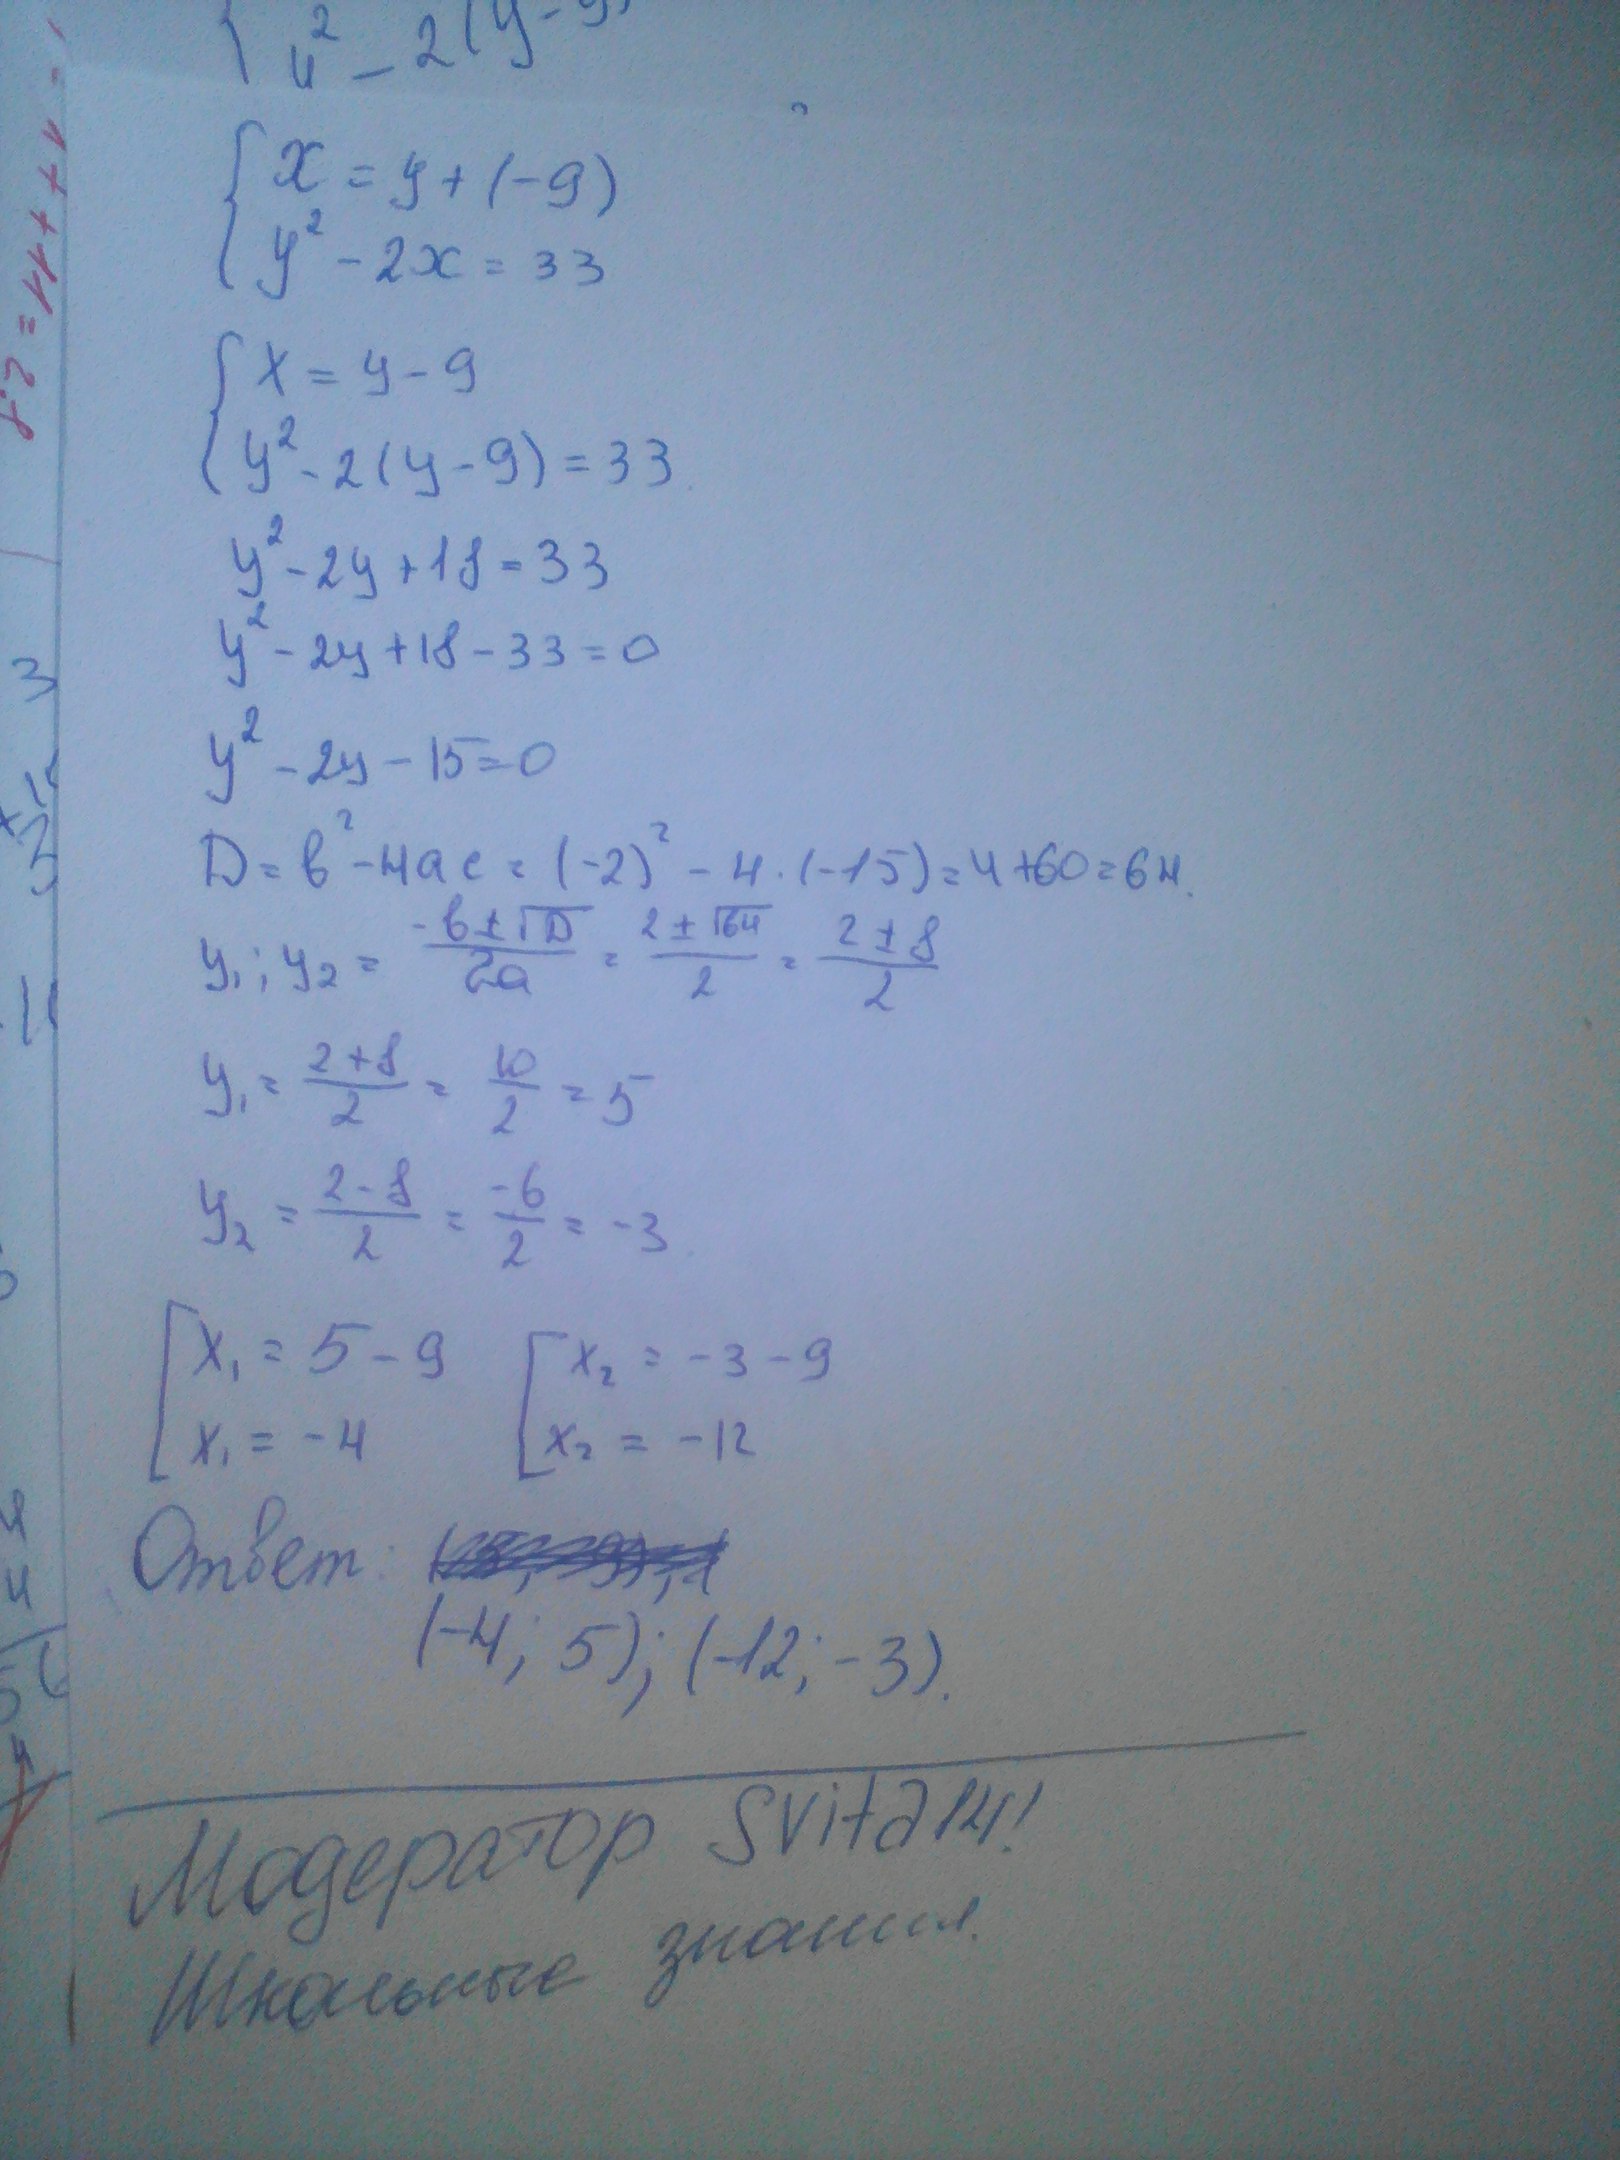 y² - 2(y-9)
x = y + (-9)
y² - 2x = 33
x = y - 9
y² - 2(y - 9) = 33.
y² - 2y + 18 = 33
y² - 2y + 18 - 33 = 0
y² - 2y - 15 = 0
D = b² - 4ac = (-2)² - 4·(-15) = 4 + 60 = 64.
y₁; y₂ = (-b ± √D)/2a = (2 ± √64)/2 = (2 ± 8)/2
y₁ = (2 + 8)/2 = 10/2 = 5
y₂ = (2 - 8)/2 = -6/2 = -3.
x₁ = 5 - 9 x₂ = -3 - 9
x₁ = -4 x₂ = -12
Ответ:
(-4; 5); (-12; -3).
Модератор Svita14!
Школьные знания.